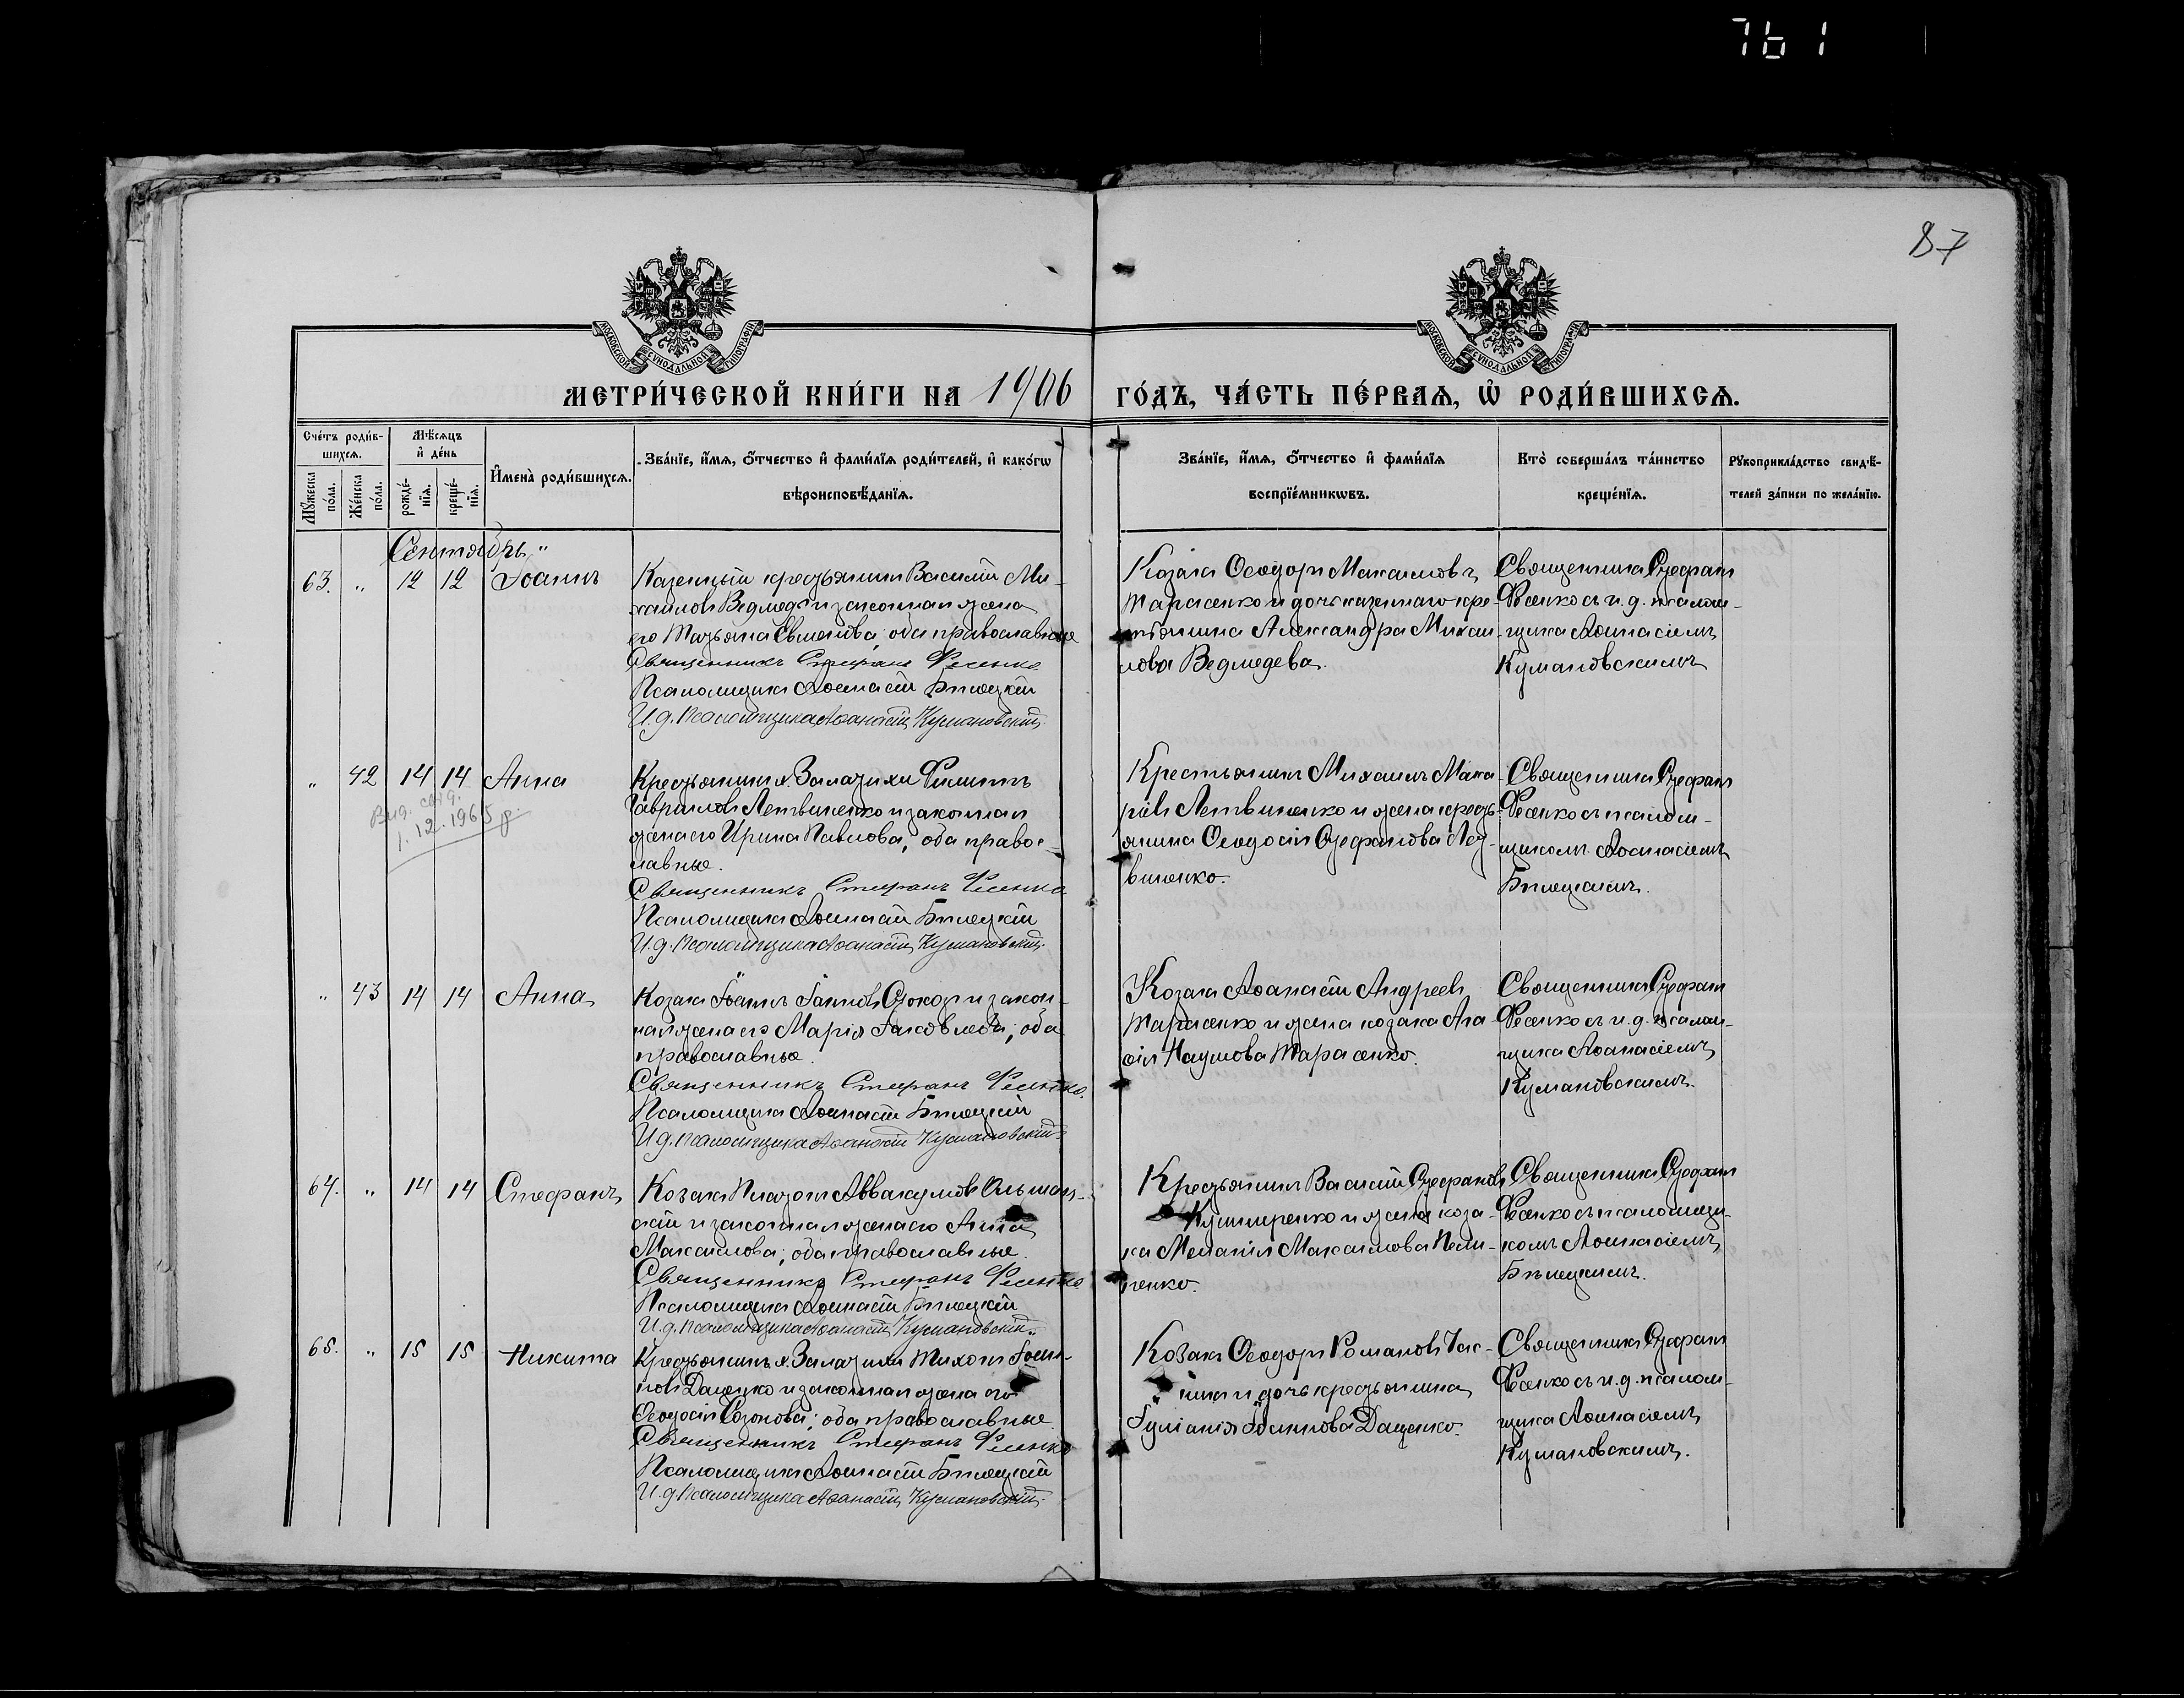 761
87
МОСКОВСКОЙ СѴНОДАЛЬНОЙ ТИПОГРАФІИ
МОСКОВСКОЙ СѴНОДАЛЬНОЙ ТИПОГРАФІИ
МЕТРИ́ЧЕСКОЙ КНИ́ГИ НА 1906 ГО́ДЪ, ЧА́СТЬ ПЕ́РВАѦ, Ѡ҆ РОДИ́ВШИХСѦ.
Сче́тъ роди́в-
шихсѧ.
Мꙋ́жеска по́ла.
Же́нска по́ла.
Мѣ́сѧцъ
и҆ де́нь
рожде́-
нїѧ.
креще́-
нїѧ.
И҆мена̀ роди́вшихсѧ.
Зва́нїе, и҆́мѧ, ѻ҆́тчество и҆ фами́лїѧ роди́телей, и҆ како́гѡ
вѣроисповѣ́данїѧ.
Зва́нїе, и҆́мѧ, ѻ҆́тчество и҆ фами́лїѧ
воспрїе́мникѡвъ.
Кто̀ соверша́лъ та́инство
креще́нїѧ.
Рꙋкоприкла́дство свидѣ́-
телей за́писи по жела́нїю.
Сентябрь"
63. " 12 12 Іоаннъ
Казенный крестьянинъ Василій Ми-
хаиловъ Ведмедь и законная жена
его Татьяна; оба православные
Священникъ Стефанъ Фесенко
Псаломщикъ Аѳанасій Бѣлецкій
И.д. псаломщика Аѳанасій Кумановскій.
Козакъ Ѳеодоръ Максимовъ
Тарасенко и дочь казеннаго кре-
стьянина Александра Михаи-
лова Ведмедева.
Священникъ Стефанъ
Фесенко съ и.д. псалом-
щика Аѳанасіемъ
Кумановскимъ
" 42 14 14 Анна
Вид. свід.
1.12.1965 р.
Крестьянинъ х. Залазихи Филиппъ
Гавриловъ Летвиненко и законная
жена его Ирина Павлова; оба правос-
лавные.
Священникъ Стефанъ Фесенко
Псаломщикъ Аѳанасій Бѣлецкій
И.д. псаломщика Аѳанасій Кумановскій.
Крестьянинъ Михаилъ Мака-
ріевъ Летвиненко и жена кресть-
янина Ѳеодосія Стефанова Лет-
виненко.
Священникъ Стефанъ
Фесенко съ псалом-
щикомъ Аѳанасіемъ
Бѣлецкимъ.
" 43 14 14 Анна
Козакъ Іоаннъ и закон-
ная жена его Марія Іаковлева; оба
православные.
Священникъ Стефанъ Фесенко.
Псаломщикъ Аѳанасій Бѣлецкій
И.д. псаломщика Аѳанасій Кумановскій.
Козакъ Аѳанасій Андреевъ
Тарасенко и жена козака Ага-
ѳія Наумова Тарасенко.
Священникъ Стефанъ
Фесенко съ и.д. псалом-
щика Аѳанасіемъ
Кумановскимъ.
64. " 14 14 Стефанъ
Козакъ Платонъ Аввакумовъ Ольшан-
скій и законная жена его Анна
Максимова; оба православные.
Священникъ Стефанъ Фесенко
Псаломщикъ Аѳанасій Бѣлецкій
И.д. псаломщика Аѳанасій Кумановскій.
Крестьянинъ Василій Стефановъ
Кушниренко и жена коза-
ка Меланія Максимова
Священникъ Стефанъ
Фесенко съ псаломщи-
комъ Аѳанасіемъ
Бѣлецкимъ.
65. " 15 15 Никита
Крестьянинъ х. Залазихи Тихонъ Іоан-
новъ Даценко и законная жена его
Ѳеодосія Созонова; оба православные
Священникъ Стефанъ Фесенко
Псаломщикъ Аѳанасій Бѣлецкій
И.д. псаломщика Аѳанасій Кумановскій.
Козакъ Ѳеодоръ Романовъ
и дочь крестьянина
Іуліанія Іоаннова Даценко.
Священникъ Стефанъ
Фесенко съ и.д. псалом-
щика Аѳанасіемъ
Кумановскимъ.